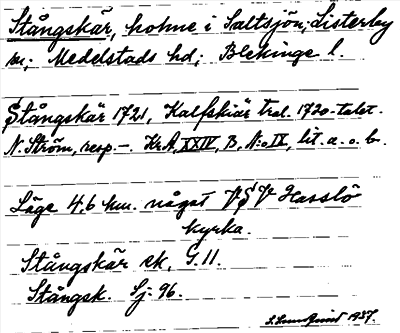 Stångskär, holme i Saltsjön; Listerby
sn; Medelstads hd; Blekinge l.
Stångskär 1721, Kalfskiär tral. 1720-talet.
N. Ström, resp. -. Kr.A, XXIV, B, N:o IX, lit. a. o. b.
Läge 4,6 km. något VSV Hasslö
kyrka.
Stångskär ek, G. 11.
Stångsk. Sj: 96.
1927.